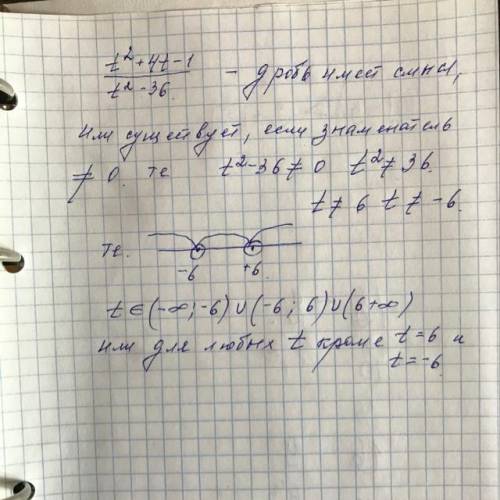 t²+4t-1
t²-36. - дробь имеет смысл,
или существует, если знаменатель
≠ 0. те t²-36≠0 t²≠36.
t≠6 t≠-6.
те.
-6 +6.
t∈(-∞;-6)∪(-6; 6)∪(6+∞)
или для любых t кроме t=6 и
t=-6.